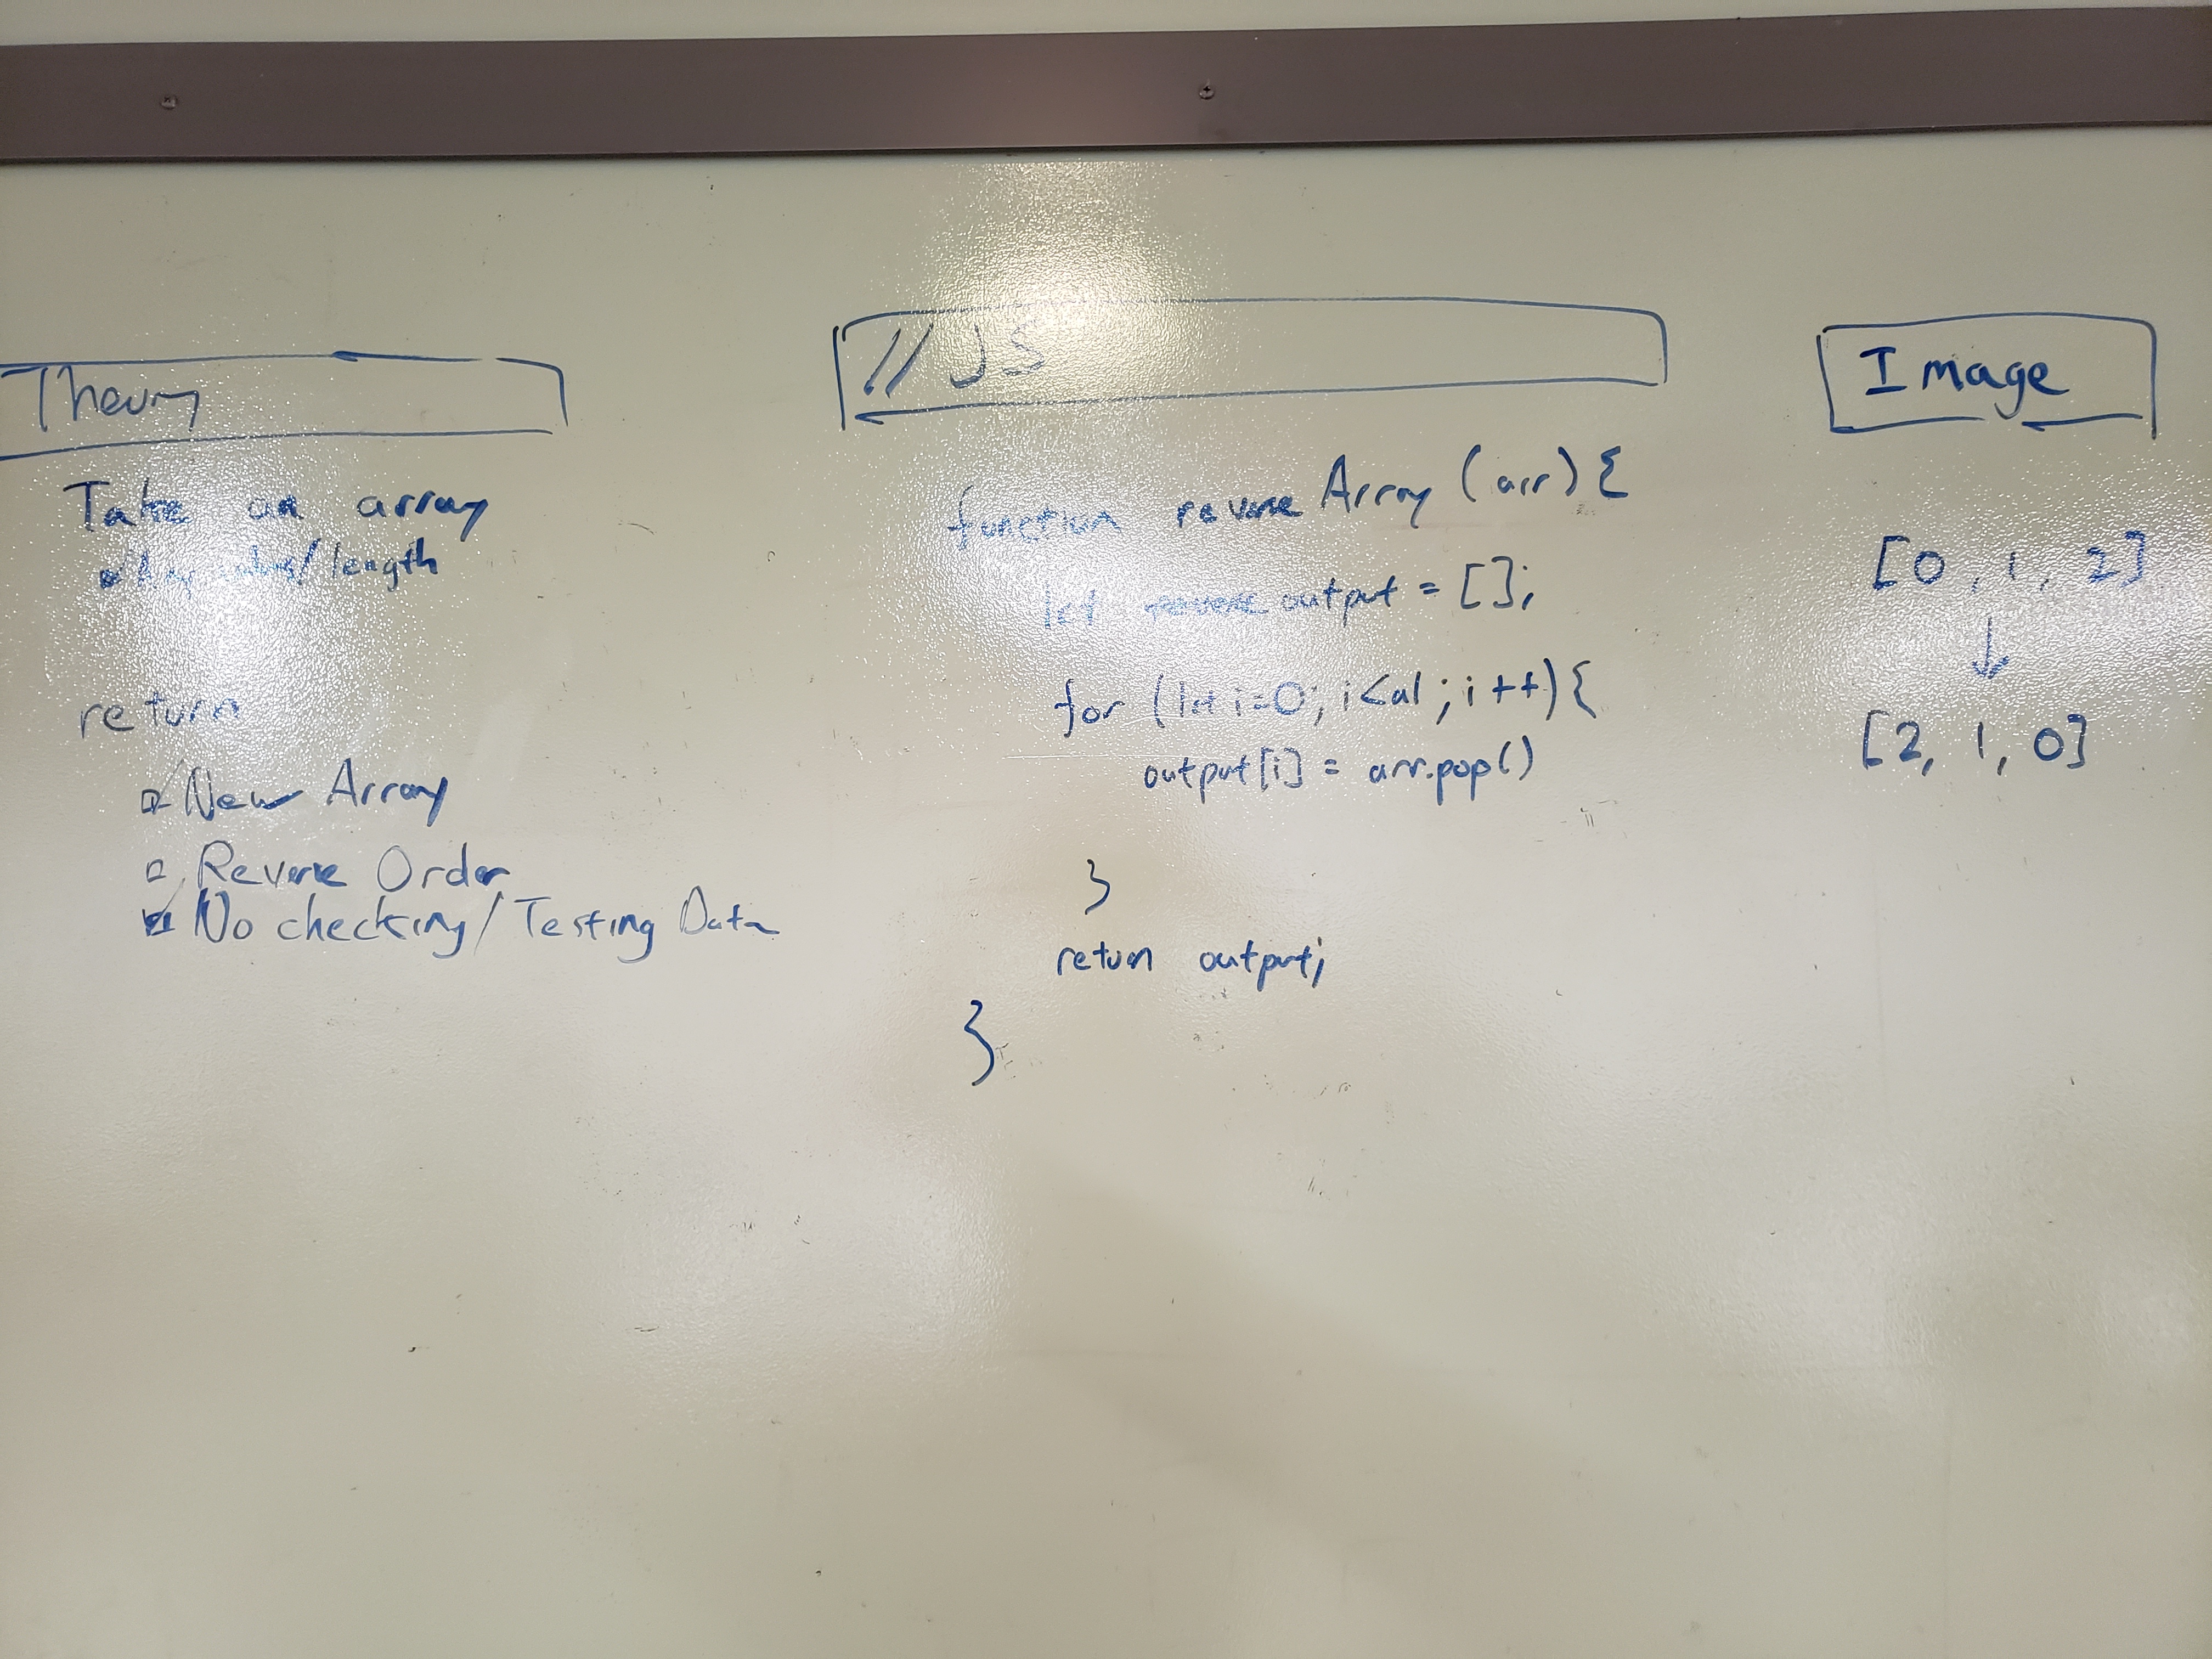 Theory
Take an array
Any values/length
return
New Array
Reverse Order
No checking/Testing Data
// JS
function reverse Array (arr) {
let output = [];
for (let i=0; i<al; i++){
output[i] = arr.pop()
}
return output;
}
Image
[0, 1, 2]
↓
[2, 1, 0]